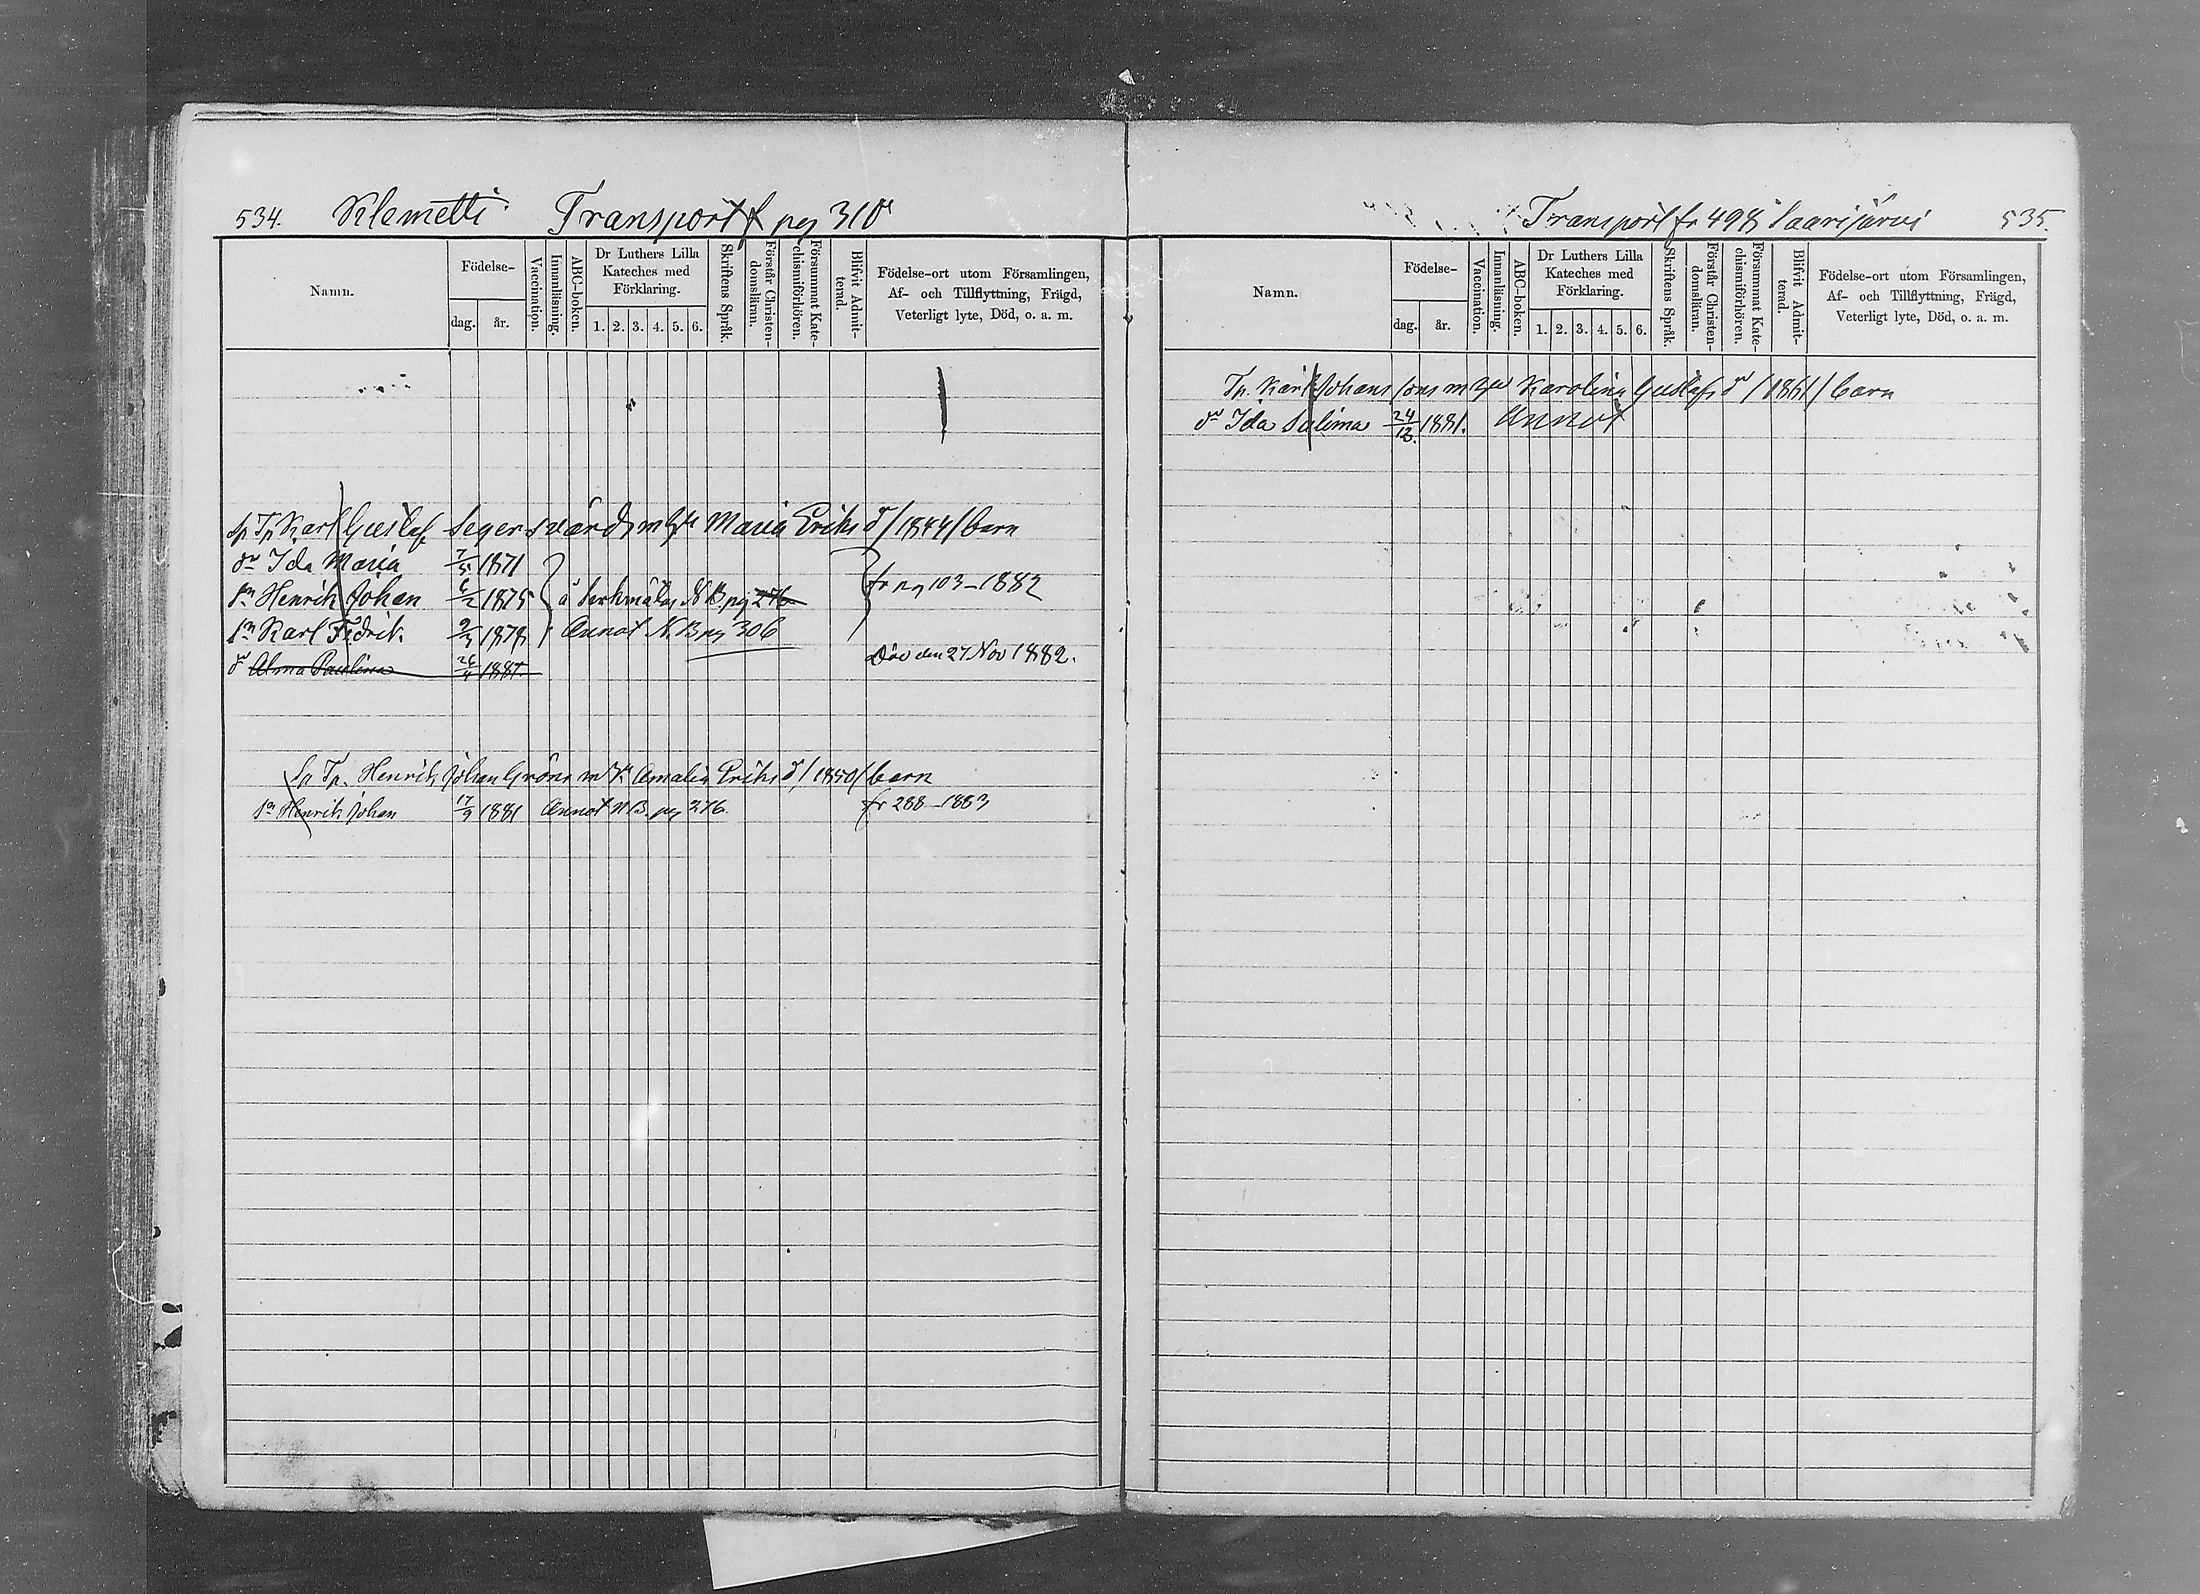 534. Klemetti Transport f pag 310
Namn.
Födelse-
dag.
år.
Vaccination.
Innanläsning.
ABC-boken.
Dr Luthers Lilla
Kateches med
Förklaring.
1. 2. 3. 4. 5. 6.
Skriftens Språk.
Förstår Christen-
domsläran.
Försummat Kate-
chismiförhören.
Blifvit Admit-
terad.
Födelse-ort utom Församlingen,
Af- och Tillflyttning, Frägd,
Veterligt lyte, Död, o. a. m.
Tp Karl Gustaf Segersvärds m h Maria Eriks dr / 1844 / barn
dr Ida Maria 7/5 1871
sn Henrik Johan 6/2 1875 å NB. pg 276 fr pg 103-1882
sn Karl Fredrik 9/3 1878 Annot N.B. pg 306
dr Alma Paulina 26/4 1881 Död den 27 Nov 1882.
Tp. Henrik Johan Gröns m h Amalia Eriks dr / 1850 / barn
sn Henrik Johan 17/9 1881 Annot N B. pg 276. fr 288-1883
Transport fr 498 Saarijärvi 535.
Namn.
Födelse-
dag.
år.
Vaccination.
Innanläsning.
ABC-boken.
Dr Luthers Lilla
Kateches med
Förklaring.
1. 2. 3. 4. 5. 6.
Skriftens Språk.
Förstår Christen-
domsläran.
Försummat Kate-
chismiförhören.
Blifvit Admit-
terad.
Födelse-ort utom Församlingen,
Af- och Tillflyttning, Frägd,
Veterligt lyte, Död, o. a. m.
Tp. Karl Johans sons m Karolina Gustafs dr / 1861 / barn
dr Ida Salima 24/12 1881. Annot